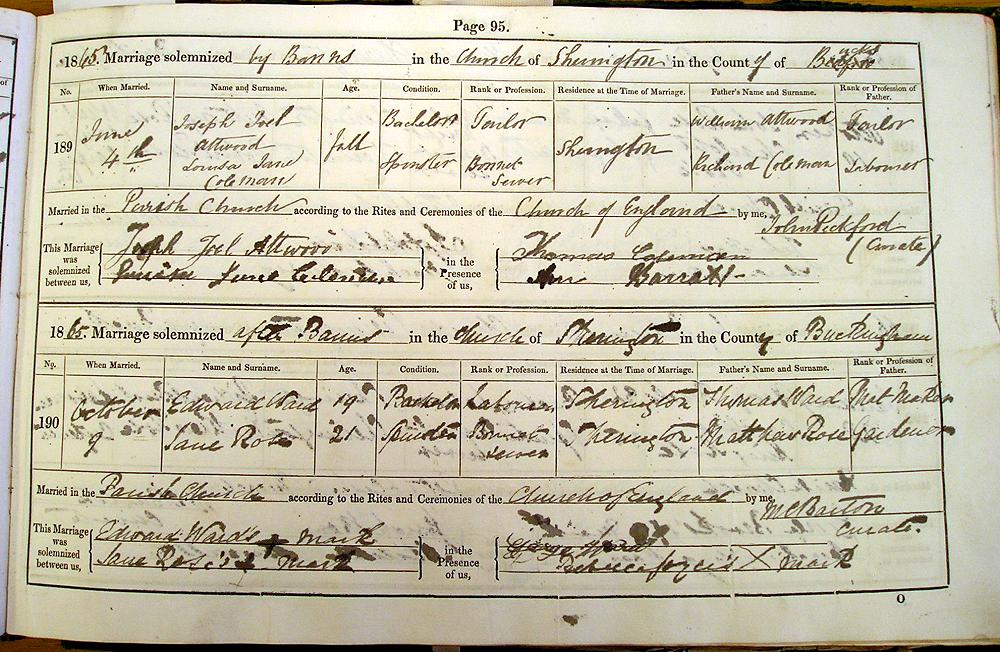 Page 95.
1865. Marriage solemnized by Banns in the Church of Sherington in the County of Bucks
No. When Married. Name and Surname. Age. Condition. Rank or Profession. Residence at the Time of Marriage. Father's Name and Surname. Rank or Profession of Father.
189 June 4th Joseph Joel Attwood full Bachelor Tailor Sherington William Attwood Tailor
Louisa Jane Coleman Spinster Bonnet Sewer Richard Coleman Labourer
Married in the Parish Church according to the Rites and Ceremonies of the Church of England by me,
John Pickford (Curate)
This Marriage was solemnized between us, Joseph Joel Attwood in the Presence of us, Thomas
Louisa Jane Coleman Ann Barratt
1865. Marriage solemnized after Banns in the Church of Sherington in the County of Buckingham
No. When Married. Name and Surname. Age. Condition. Rank or Profession. Residence at the Time of Marriage. Father's Name and Surname. Rank or Profession of Father.
190 October 9 Edward Ward 19 Bachelor Labourer Sherington Thomas Ward Mat Maker
Jane Rose 21 Spinster Bonnet sewer Sherington Matthew Rose Gardener
Married in the Parish Church according to the Rites and Ceremonies of the Church of England by me,
Curate.
This Marriage was solemnized between us, Edward Ward's X mark in the Presence of us, George Ward
Jane Rose's X mark Rebecca X mark
O